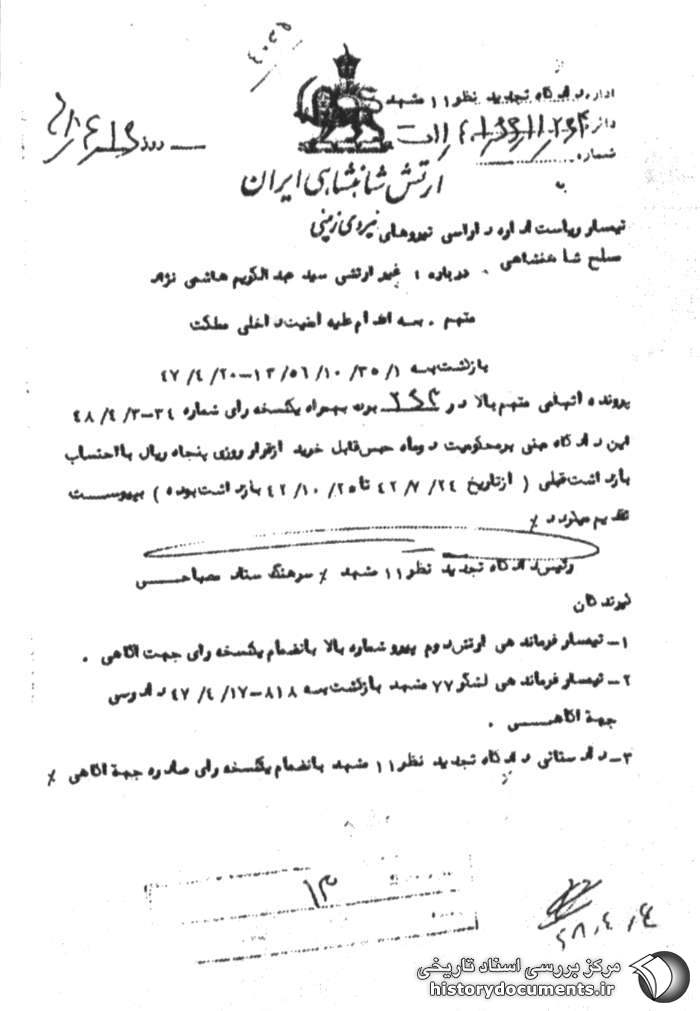 اداره دادگاه تجدید نظر ۱۱ مشهد
دائره
شماره
ارتش شاهنشاهی ایران
تیمسار ریاست اداره دادرسی نیروهای
نیروی زمینی
مسلح شاهنشاهی
درباره : غیر ارتشی سید عبدالکریم هاشمی نژاد
متهم . به اقدام علیه امنیت داخلی مملکت
بازگشت به ۱ / ۳۵ / ۱۰ / ۵۶ / ۱۳-۲۰ / ۴ / ۴۷
پرونده اتهامی متهم بالا در برگ بهمراه یکنسخه رای شماره ۳۴-۳ / ۴ / ۴۸
این دادگاه مبنی بر محکومیت دوماه حبس قابل خرید از قرار روزی پنجاه ریال با احتساب
بازداشت قبلی ( از تاریخ ۲۴ / ۷ / ۴۲ تا ۲۵ / ۱۰ / ۴۲ بازداشت بوده ) بپیوست
تقدیم میگردد ٪
رئیس دادگاه تجدید نظر ۱۱ مشهد ٪ سرهنگ ستاد مصباحی
گیرندگان
۱- تیمسار فرماندهی ارتش دوم پیرو شماره بالا بانضمام یکنسخه رای جهت آگاهی .
۲- تیمسار فرماندهی لشگر ۷۷ مشهد بازگشت به ۸۱۸-۱۷ / ۴ / ۴۷ دادرسی
جهة آگاهی .
۳- دادستانی دادگاه تجدید نظر ۱۱ مشهد بانضمام یکنسخه رای صادره جهة آگاهی ٪
۱۳
۴۸.۴.۴
مرکز بررسی اسناد تاریخی
historydocuments.ir